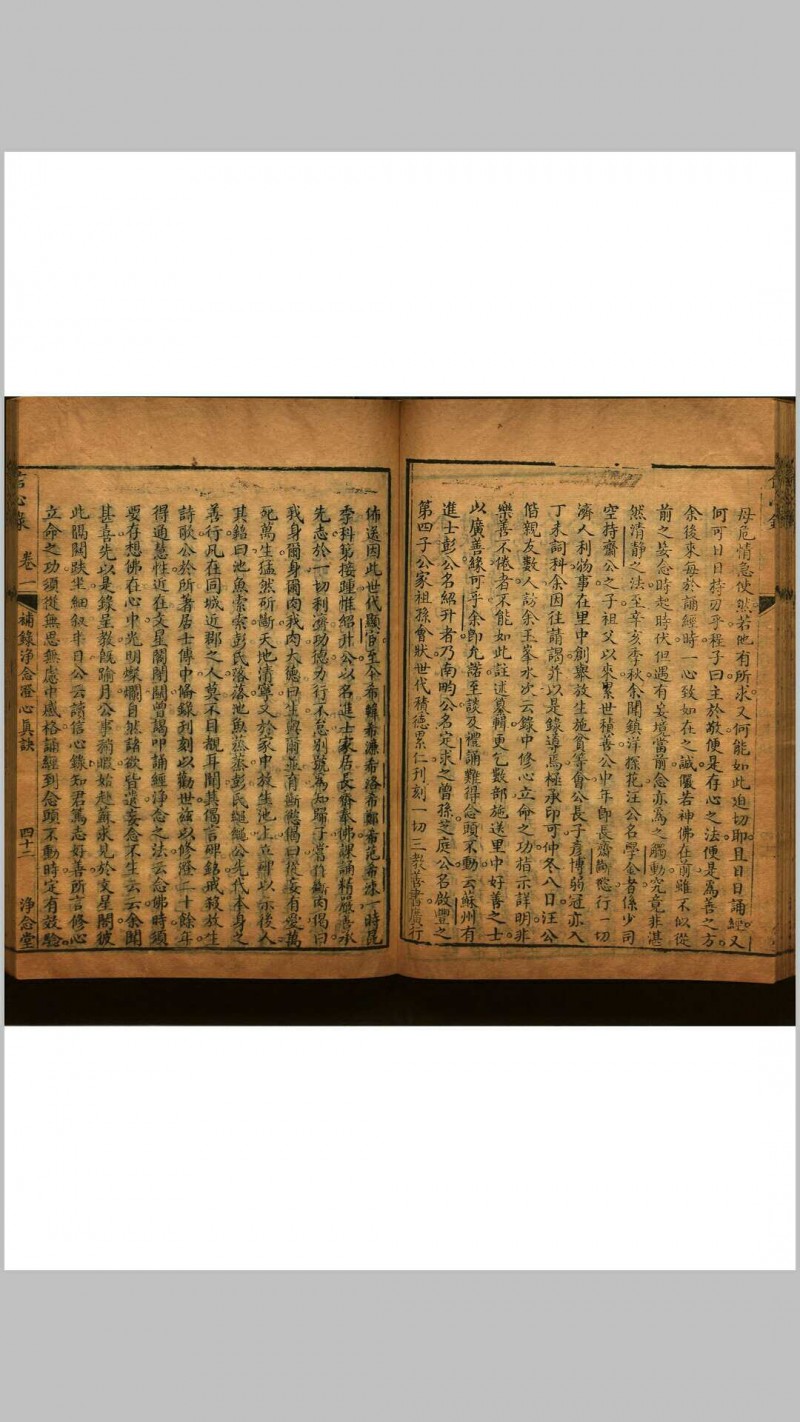 母危情急便然若他有所求又何能如此迫切耶且日日誦經又
何可日日持刃乎程子曰主於敬便是存心之法便是為善之方
余後來每於誦經時一心致如在之誠儼若神佛在前雖不似從
前之妄念時起時伏但遇有妄境當前念亦為之觸動究竟非湛
然清靜之法至辛亥季秋余聞鎮洋探花汪公名學金者係少司
空持齋公之子祖父以來累世積善公中年即長齋斷慾行一切
濟人利物事在里中創舉放生施貧等會公長子彥博弱冠亦入
丁未詞科余因往請謁并以是錄導焉極承印可仲冬八日汪公
偕親友數人訪余玉峯水次云錄中修心立命之功指示詳明非
樂善不倦者不能如此註述纂輯更乞數部施送里中好善之士
以廣善緣可乎余即允諾至談及禮誦難得念頭不動云蘇州有
進士彭公名紹升者乃南畇公名定求之曾孫芝庭公名啟豐之
第四子公家祖孫會狀世代積德累仁刊刻一切三教善書廣行
佈送因此世代顯官至今布韓希濂希洛希鄭希范希涑一時昆
季科第接踵惟紹升公以名進士家居長齋奉佛課誦精嚴善承
先志於一切利濟功德力行不怠別號為知歸子嘗作斷肉偈曰
我身爾身爾肉我肉大德曰生與爾並育斷慾偈曰從妄有愛萬
死萬生猛然斫斷天地清寧又於家中放生池上立碑以示後人
其銘曰池魚索索彭氏落落池魚蒸蒸彭氏繩繩公先代本身之
善行凡在同城近郡之人莫不目覩耳聞其偈言碑銘戒殺放生
詩歌公於所著居士傳中備錄刊刻以勸世茲以修澄二十餘年
得通慧性近在文星閣閉關曾謁叩誦經淨念之法云念佛時須
要存想佛在心中光明燦爛自然諸欲皆退妄念不生云云余聞
甚喜先以是錄呈教旣踰月公事稍暇始赴蘇求見於文星閣彼
此隔關趺坐細敘半日公云讀信心錄知君篤志好善所言修心
立命之功須從無思無慮中感格誦經到念頭不動時定有效驗
信心錄 卷一 補錄淨念澄心真訣 四十二 淨念堂